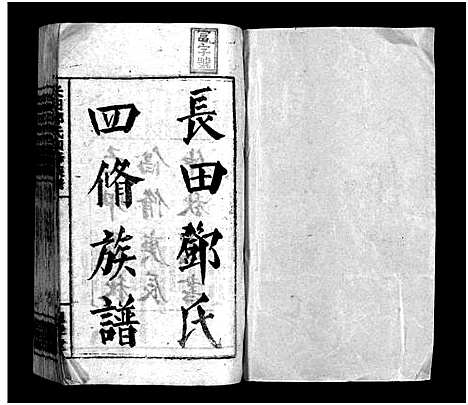 富字號
長田鄧氏
四脩族譜